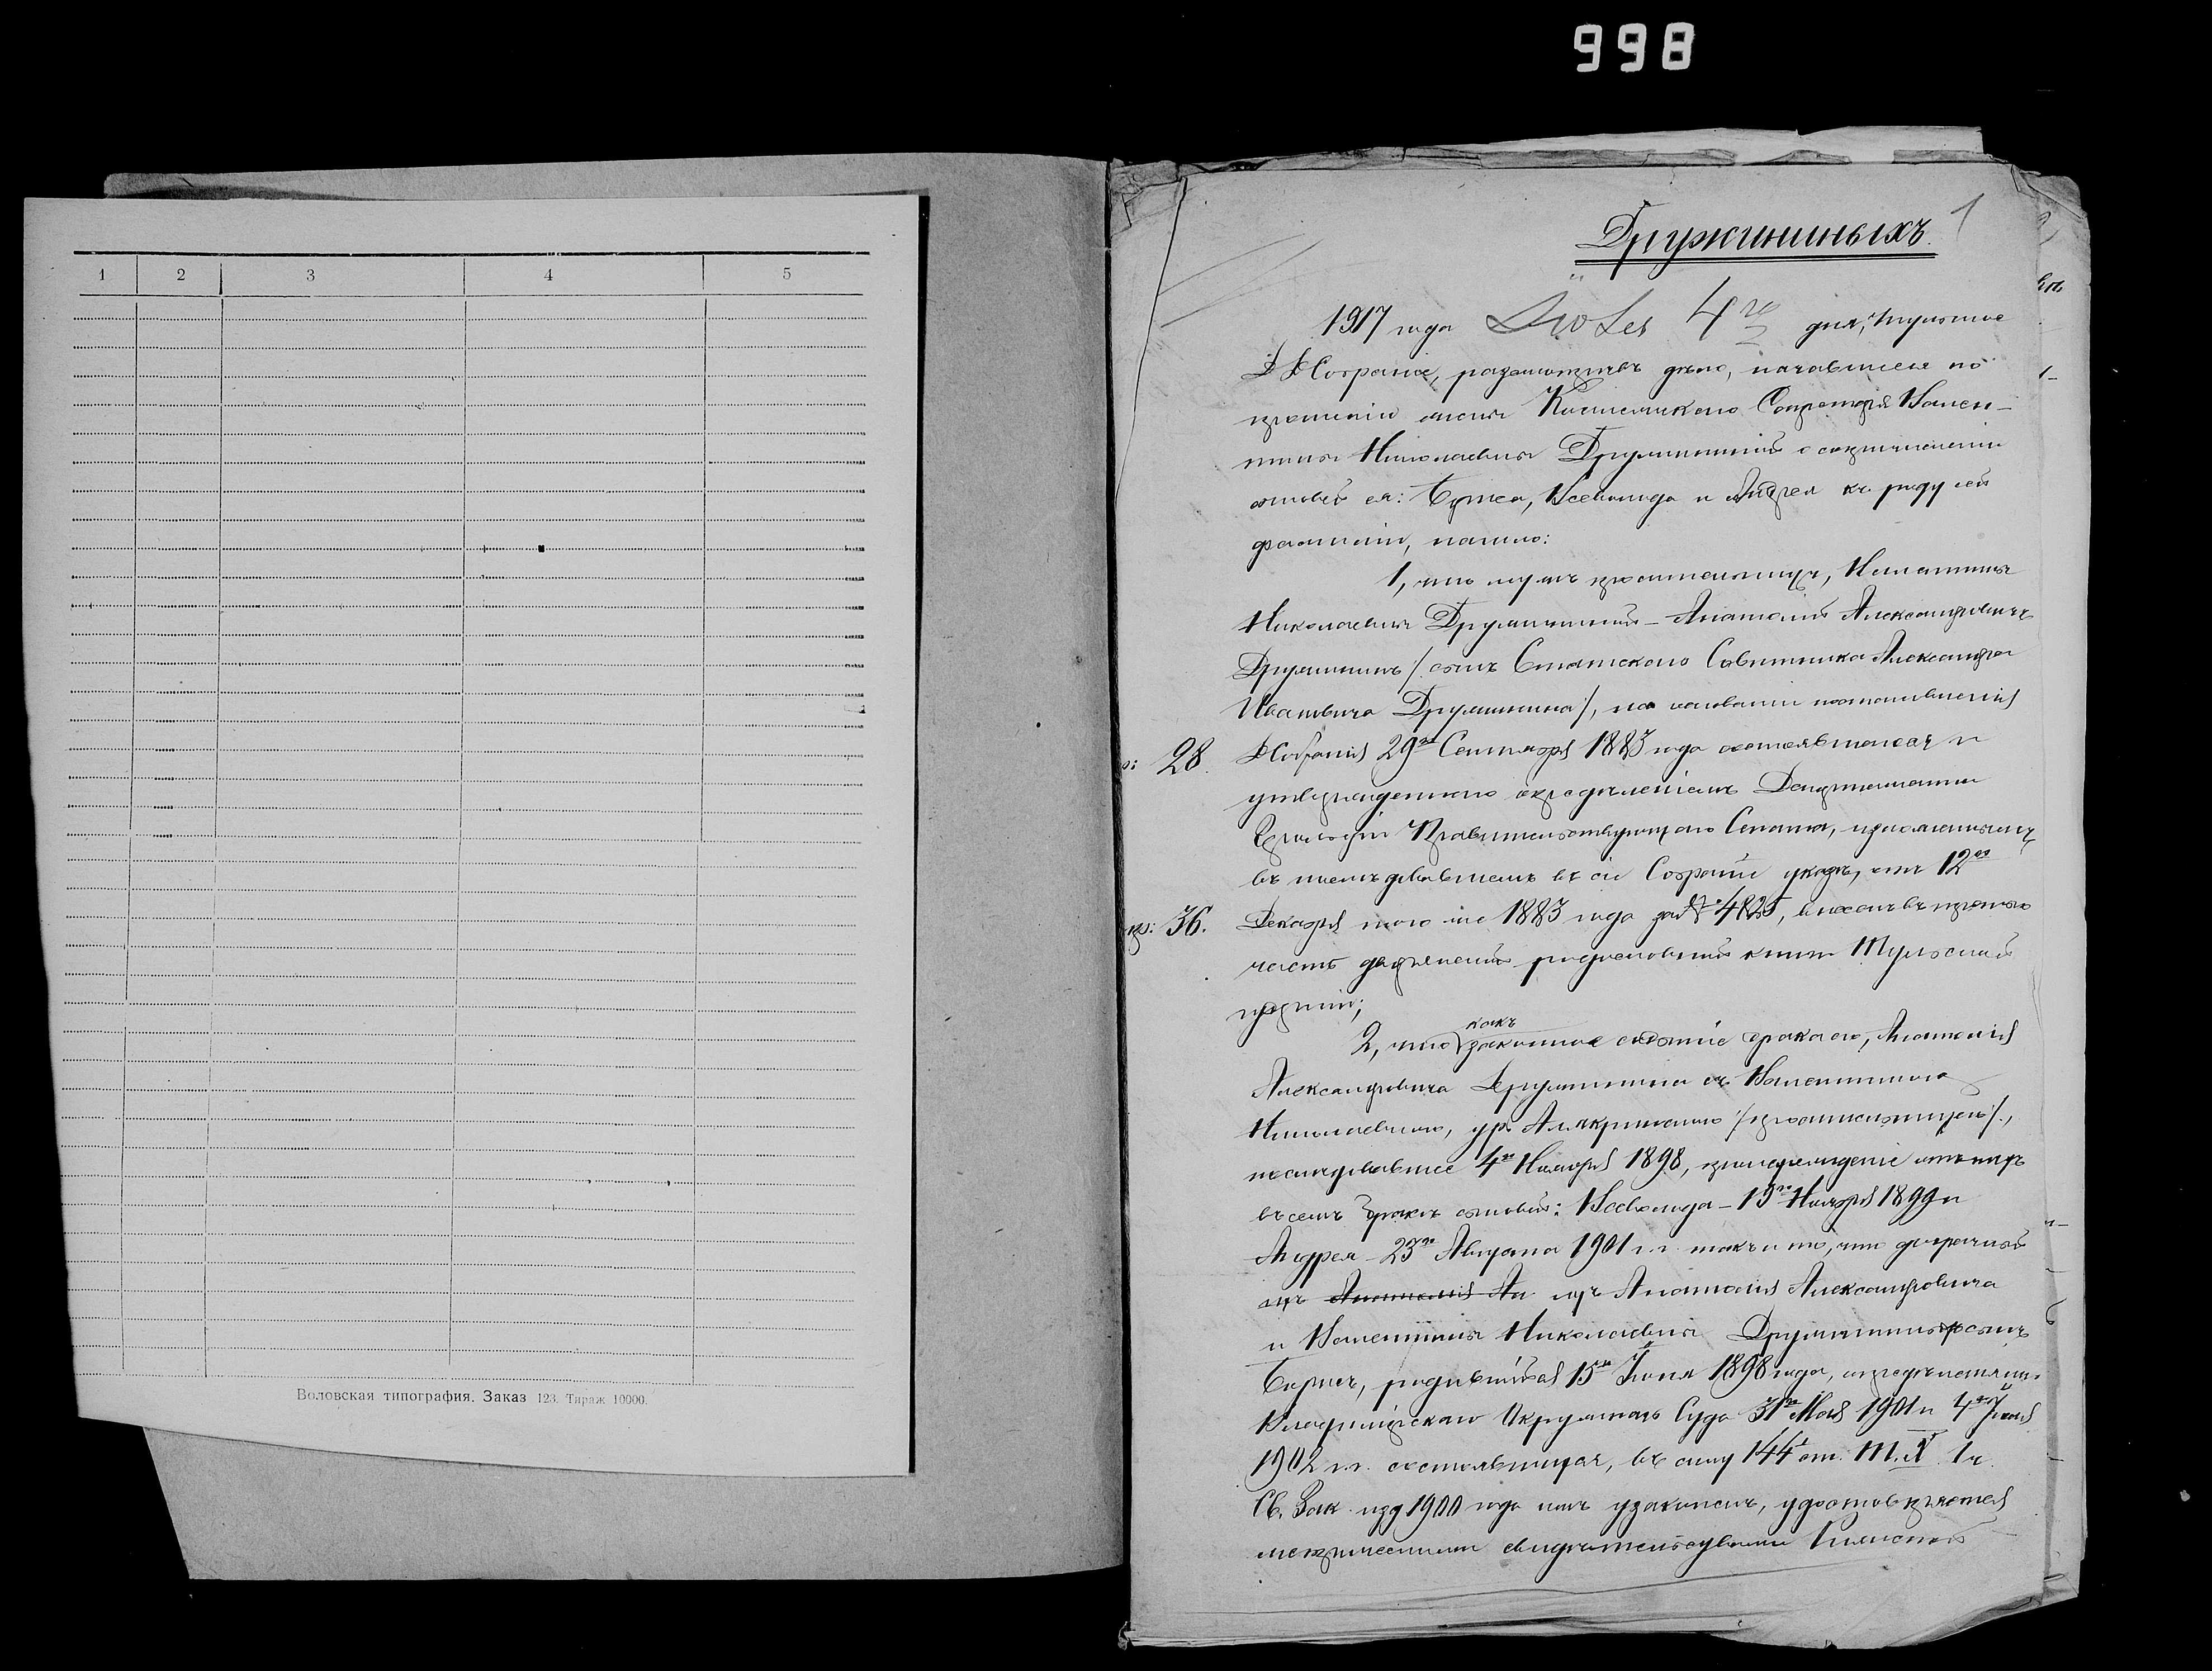 998
1 2 3 4 5
Воловская типография. Заказ 123. Тираж 10000.
1
Дружининыхъ.
1917 года Іюля 4го дня, Тульское
Д. Д. Собраніе, разсмотрѣвъ дѣло, начавшееся по
прошенію жены Коллежскаго Секретаря Вален-
тины Николаевны Дружининой о сопричисленіи
сыновей ея: Бориса, Всеволода и Андрея къ роду сей
фамиліи, нашло:
1, что мужъ просительницы, Валентины
Николаевны Дружининой – Анатолій Александровичъ
Дружининъ /: сынъ Статскаго Совѣтника Александра
Ивановича Дружинина /, на основаніи постановленія
28. Д Собранія 29го Сентября 1883 года состоявшагося и
утвержденнаго опредѣленіемъ Департамента
Герольдіи Правительствующаго Сената,
въ послѣдовавшемъ въ сіе Собраніе указѣ, отъ 12го
36. Декабря того же 1883 года за № 4825, внесенъ въ третью
часть дворянской родословной книги Тульской
губерніи;
какъ
2, что законное событіе брака его, Анатолія
Александровича Дружинина съ Валентиною
Николаевною, ур. /просительницей/.,
послѣдовавшее 4го Ноября 1898, происхожденіе отъ нихъ
въ семъ бракѣ сыновей: Всеволода – 15го Ноября 1899 и
Андрея – 23го Августа 1901 г.г. такъ и то, что добрачный
ихъ Анатолія Ал Анатолія Александровича
и Валентины Николаевны Дружининыхъ сынъ
Борисъ, родившійся 15го Іюня 1898 года, опредѣленіями
Владимірскаго Окружнаго Суда 31го Мая 1901 и 4го
1902 г.г. состоявшимся, въ силу 144¹ ст. Т. X. 1 ч.
Св. Зак. изд 1900 года узаконенъ, удостовѣряется
метрическими свидѣтельствами